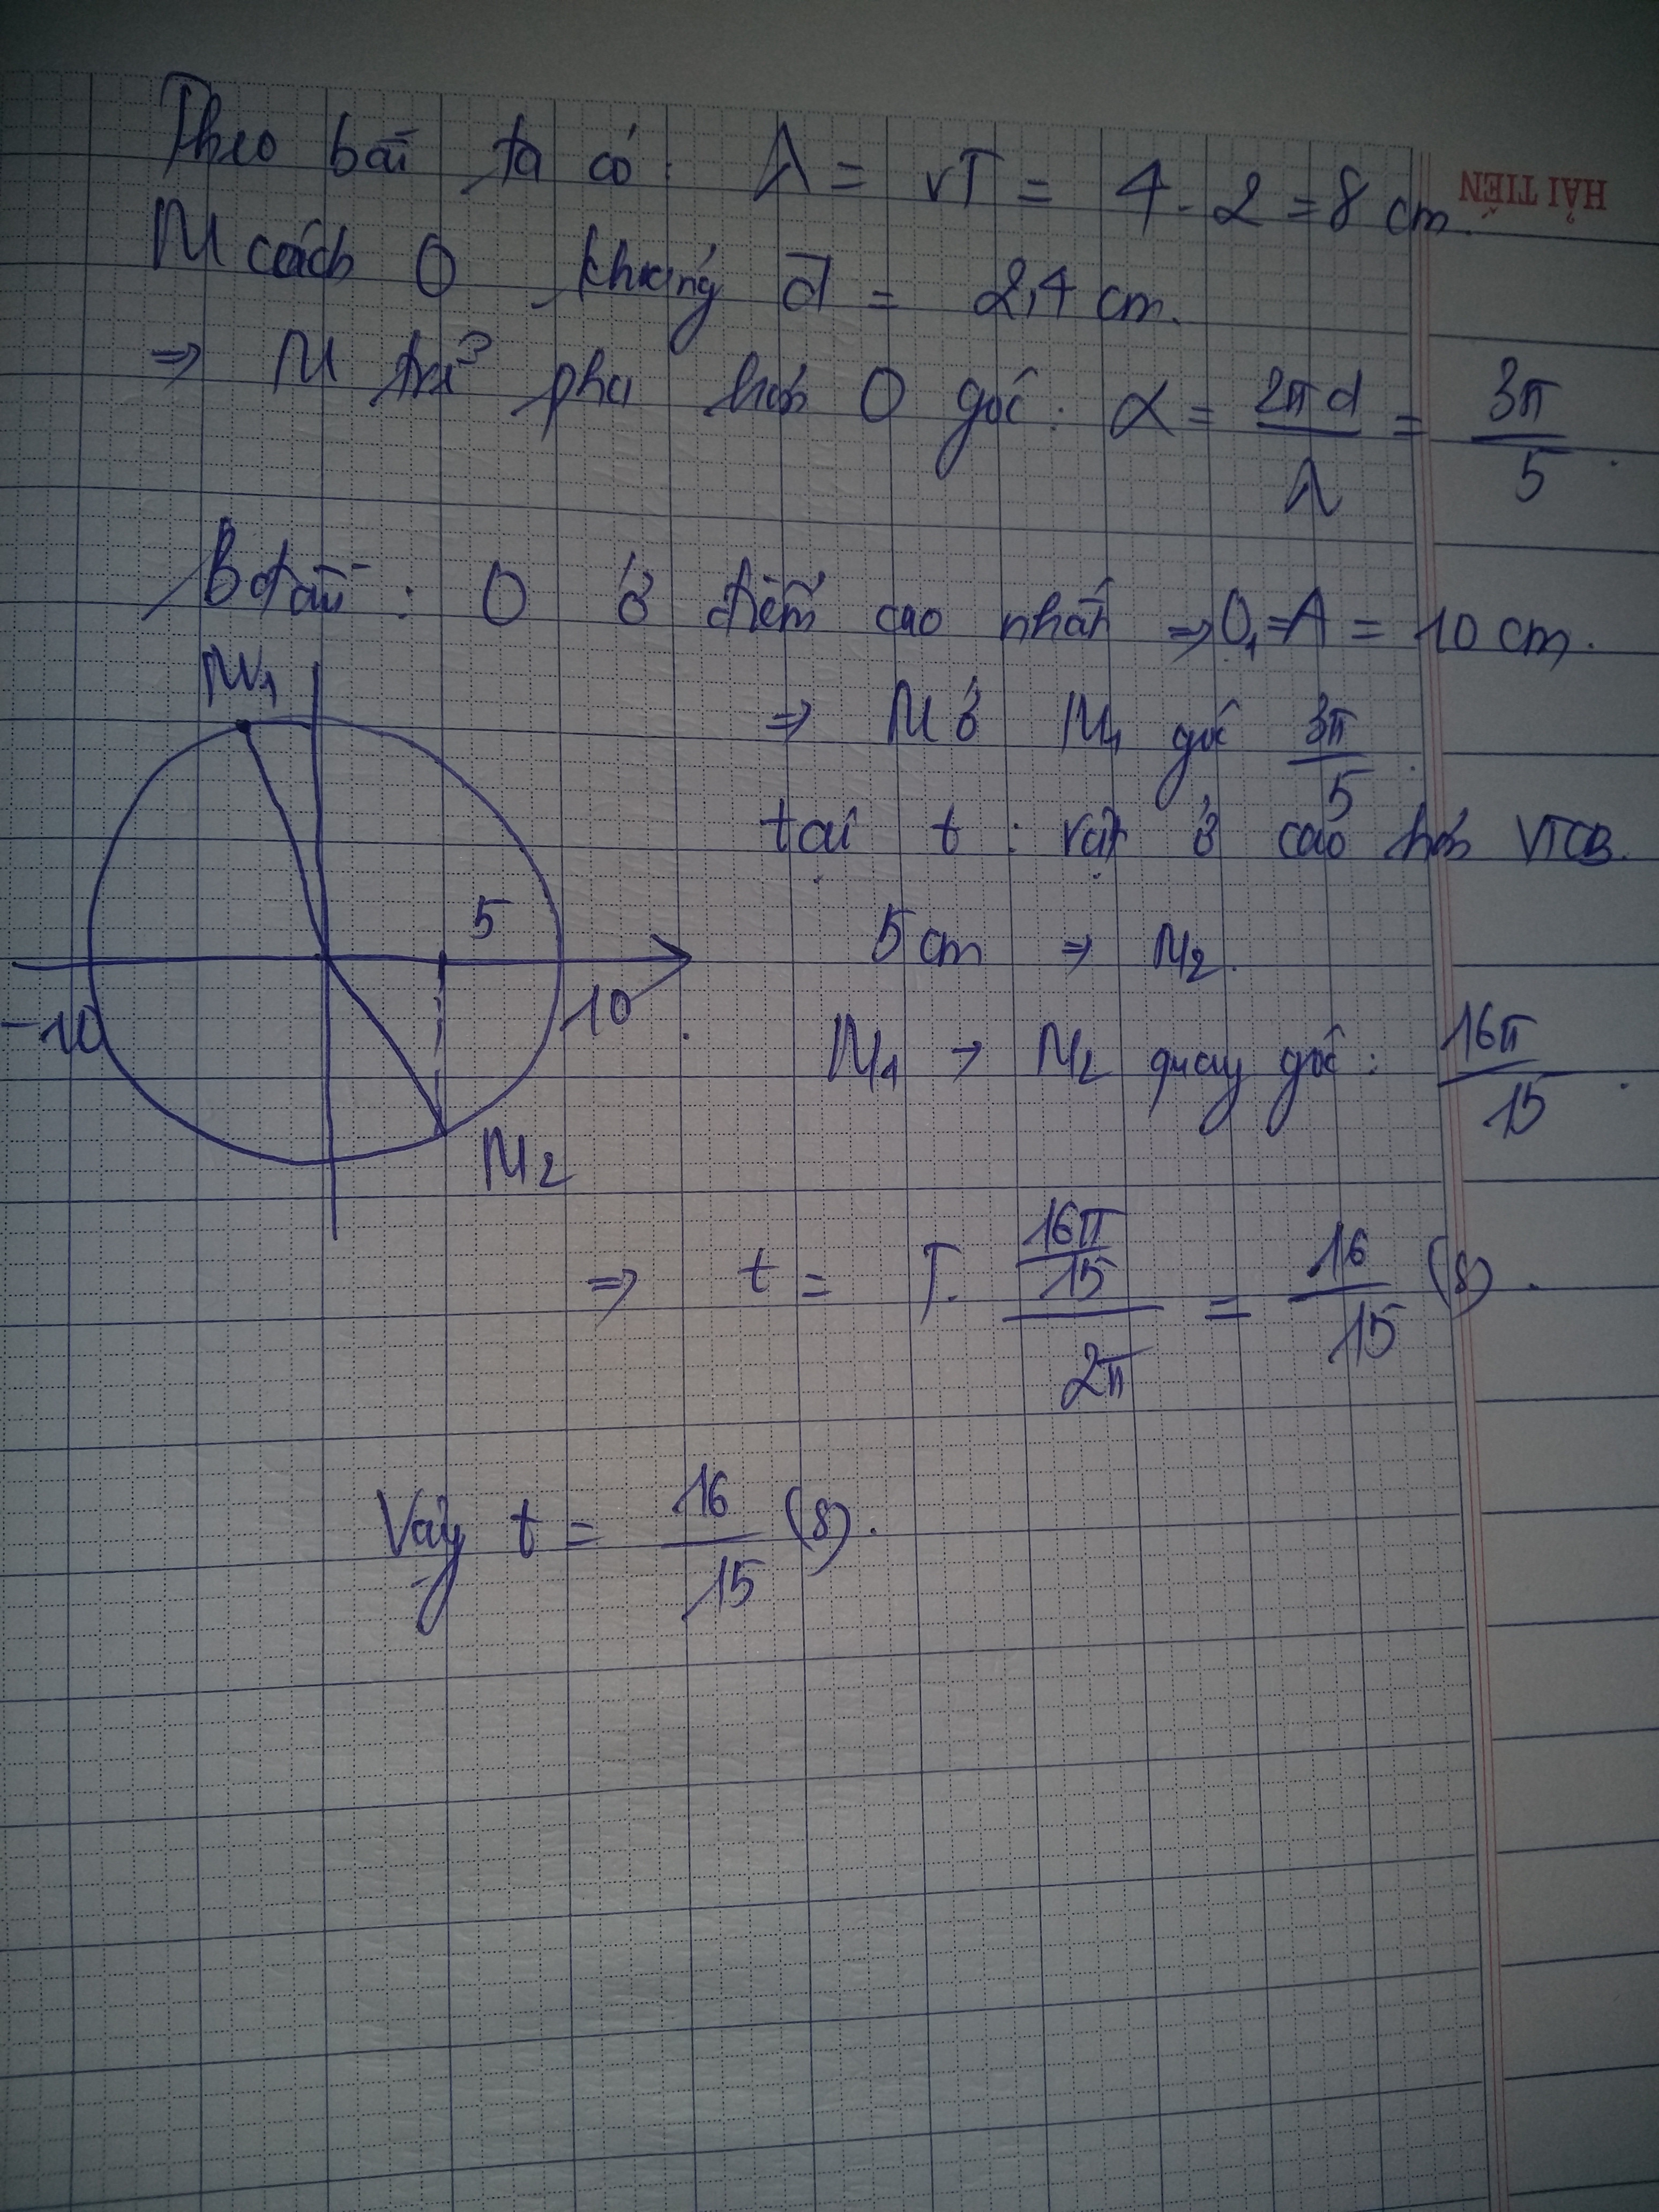 Theo bài ta có: λ = vT = 4.2 = 8 cm.
HẢI TIẾN
M cách O khoảng d = 2,4 cm.
⇒ M trễ pha hơn O góc: α = 2πd/λ = 3π/5.
Bđầu: O ở điểm cao nhất ⇒ O₁ = A = 10 cm.
M₁
⇒ M ở M₁ góc 3π/5.
tại t: vật ở cao hơn VTCB.
5
5 cm ⇒ M₂.
-10
10
M₁ → M₂ quay góc: 16π/15.
M₂
⇒ t = T. (16π/15)/2π = 16/15 (s).
Vậy t = 16/15 (s).